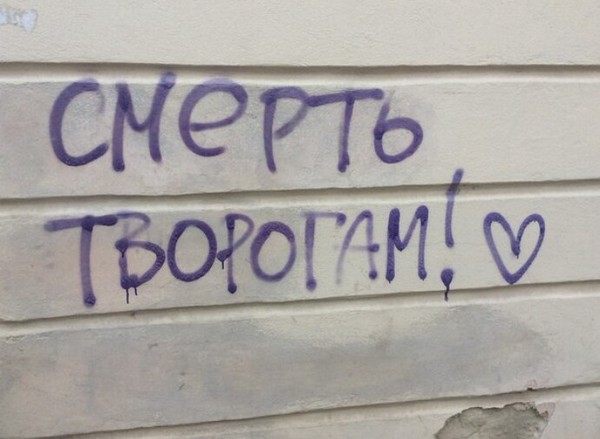 СМерТЬ
ТВОРОГАМ! ♡